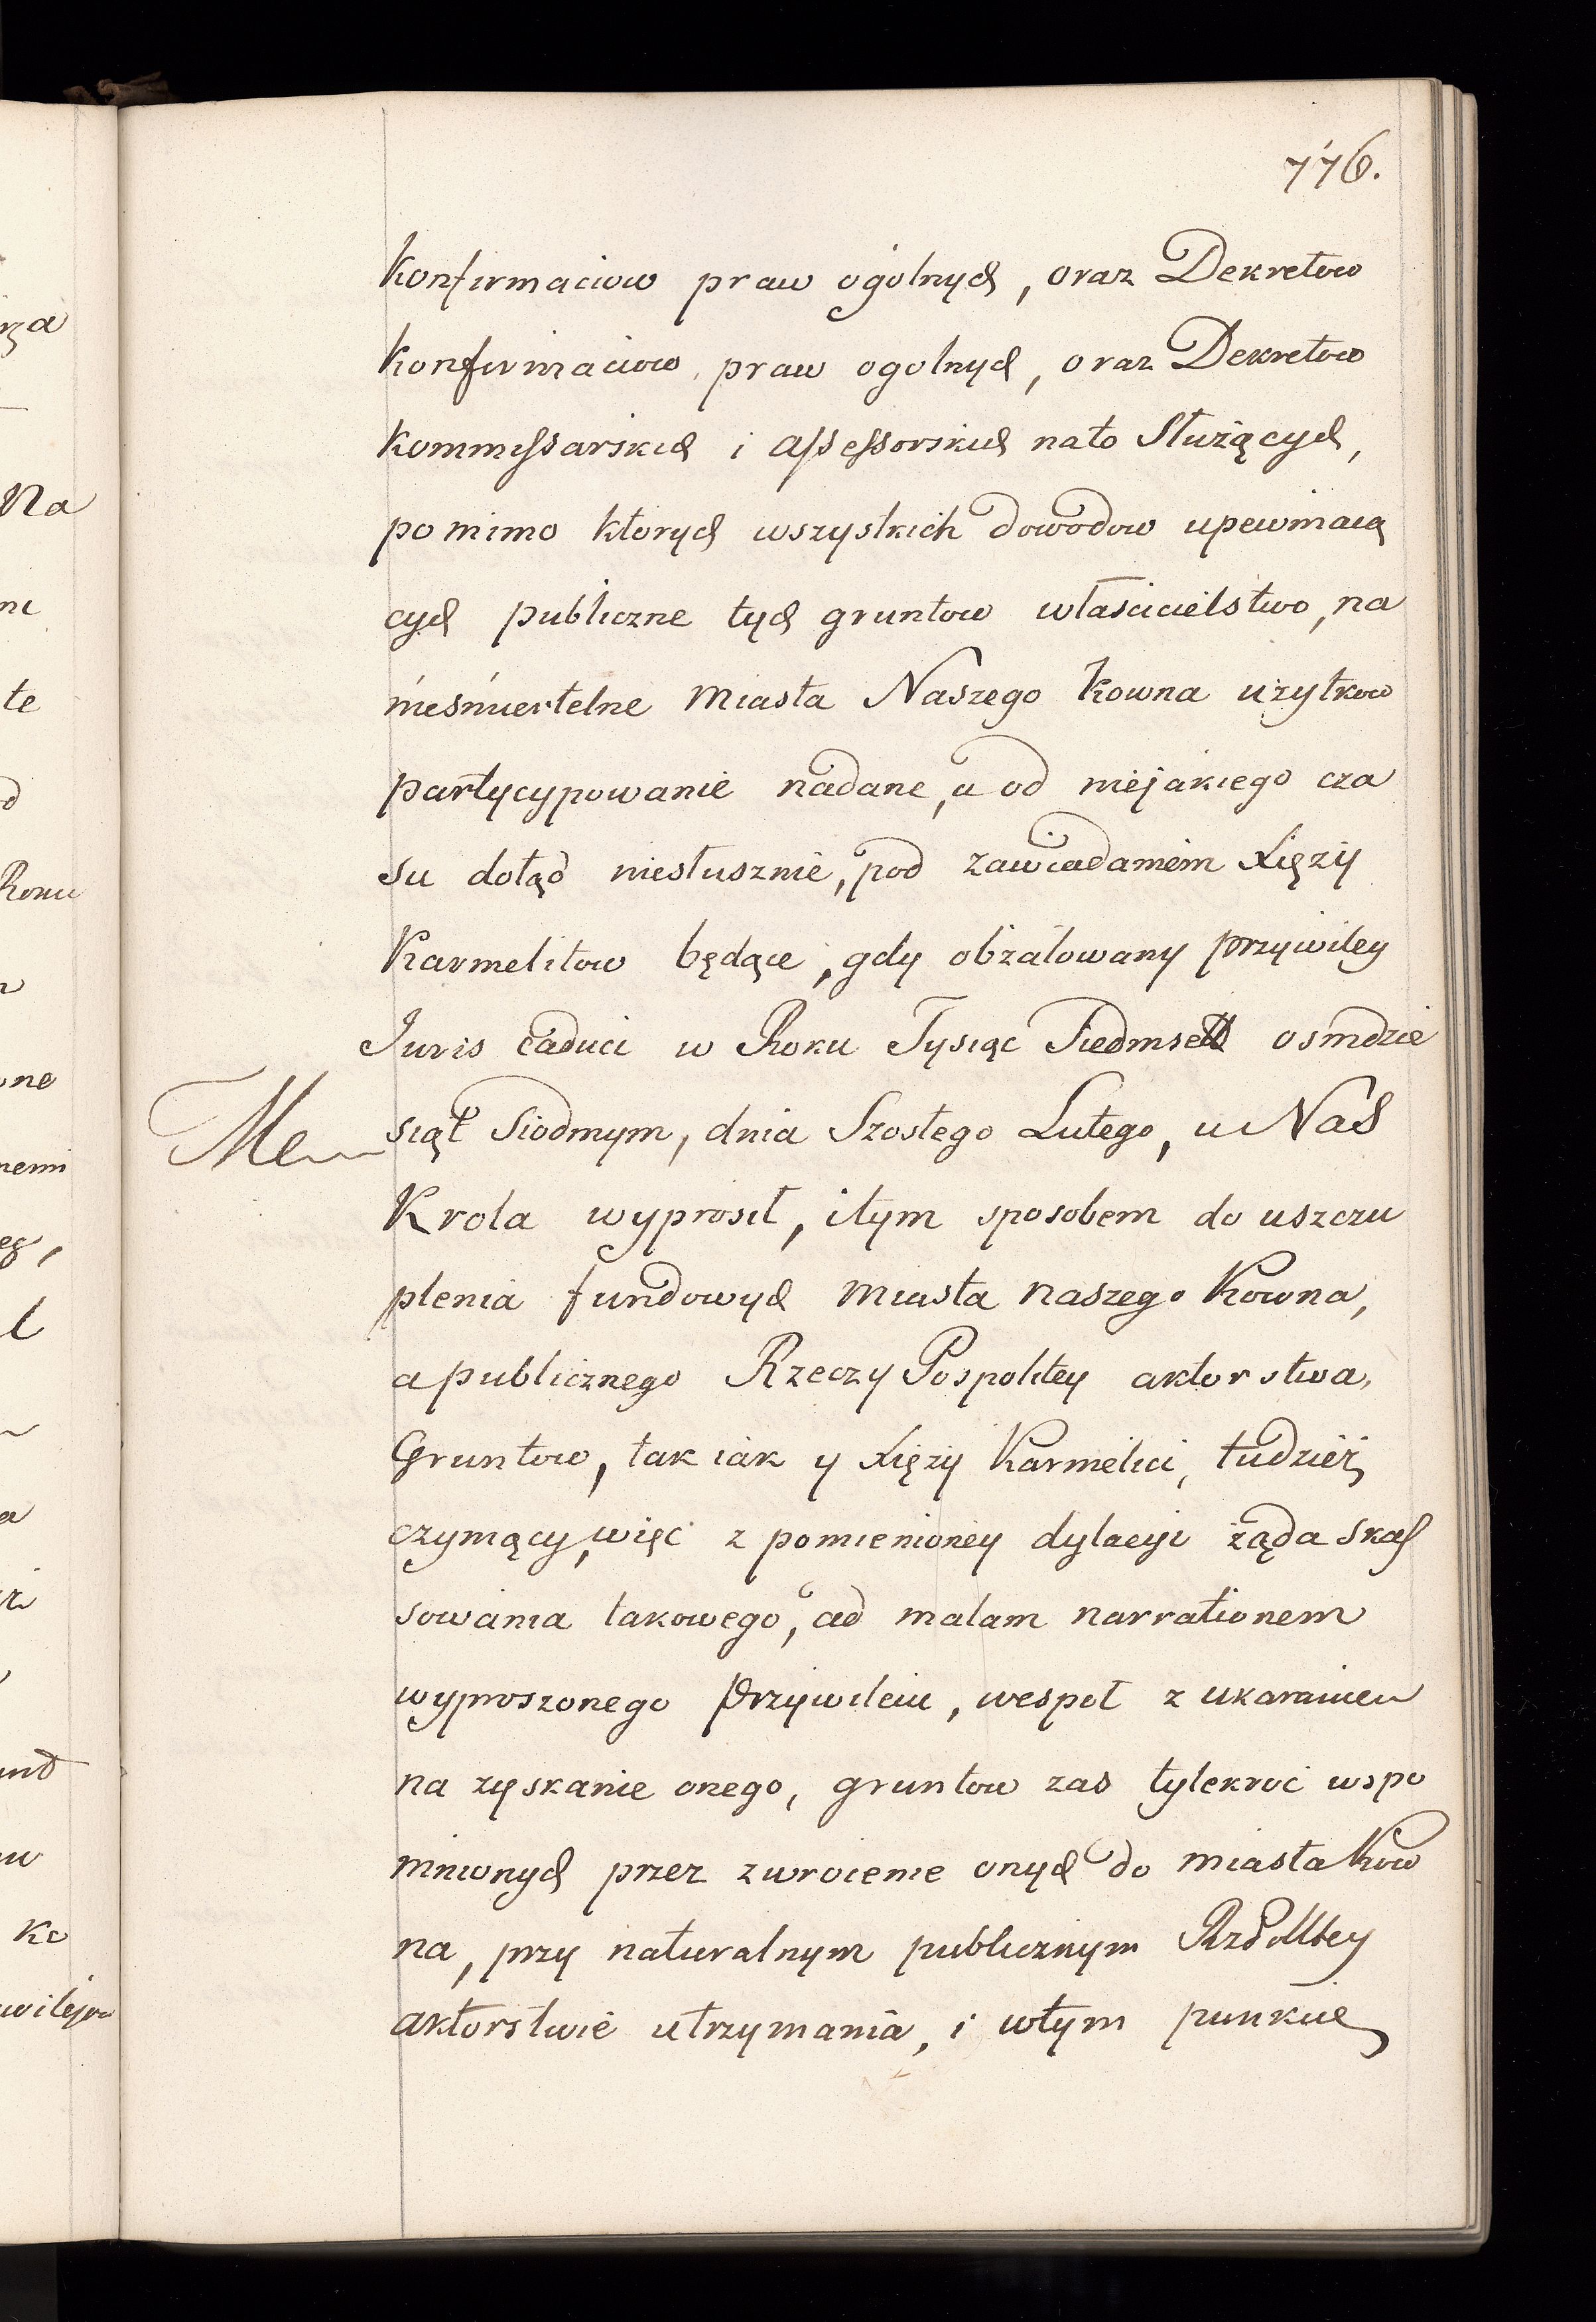 776.
konfirmaciow praw ogolnych, oraz Dekretow
konfirmaciow praw ogolnych, oraz Dekretow
kommissarskich i assessorskich nato Służących,
po mimo ktorych wszystkich dowodow upewniaią
cych publiczne tych gruntow właścicielstwo, na
nieśmiertelne Miasta Naszego Kowna użytkow
partycypowanie nadane, a od niejakiego cza
su dotąd niesłusznie, pod zawiadaniem Xięży
Karmelitow będące, gdy obżałowany przywiley
Juris caduci w Roku Tysiąc Siedmset osmdzie
siąt Siodmym, dnia Szostego Lutego, u Nas
Krola wyprosił, i tym sposobem do uszczu
plenia fundowych Miasta naszego Kowna,
a publicznego Rzeczy Pospolitey aktorstwa,
Gruntow, tak iak y Xięży Karmelici, tudzież
czyniący, więc z pomienioney dylacyi żąda skas
sowania takowego, ad malam narrationem
wyproszonego Przywileiu, wespoł z ukaraniem
na zyskanie onego, gruntow zas tylekroć wspo
mnionych przez zwrocenie onych do miasta Kow
na, przy naturalnym publicznym Rzpltey
aktorstwie utrzymania, i wtym punkcie
rza
Na
ni
te
Roku
one
nemi
l
a
ko